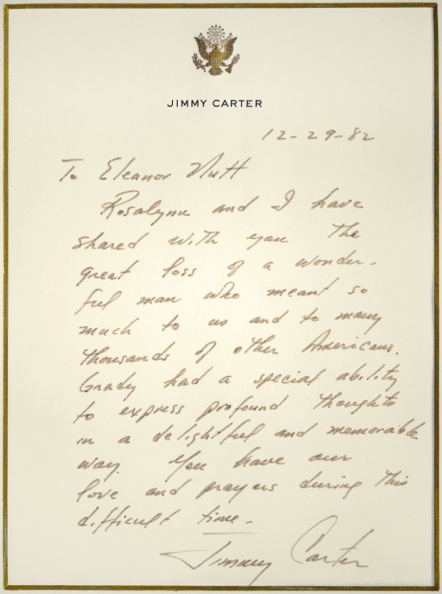 JIMMY CARTER
12-29-82
To Eleanor Nutt
Rosalynn and I have
shared with you the
great loss of a wonder-
ful man who meant so
much to us and to many
thousands of other Americans.
Grady had a special ability
to express profound thoughts
in a delightful and memorable
way. You have our
love and prayers during this
difficult time.
Jimmy Carter